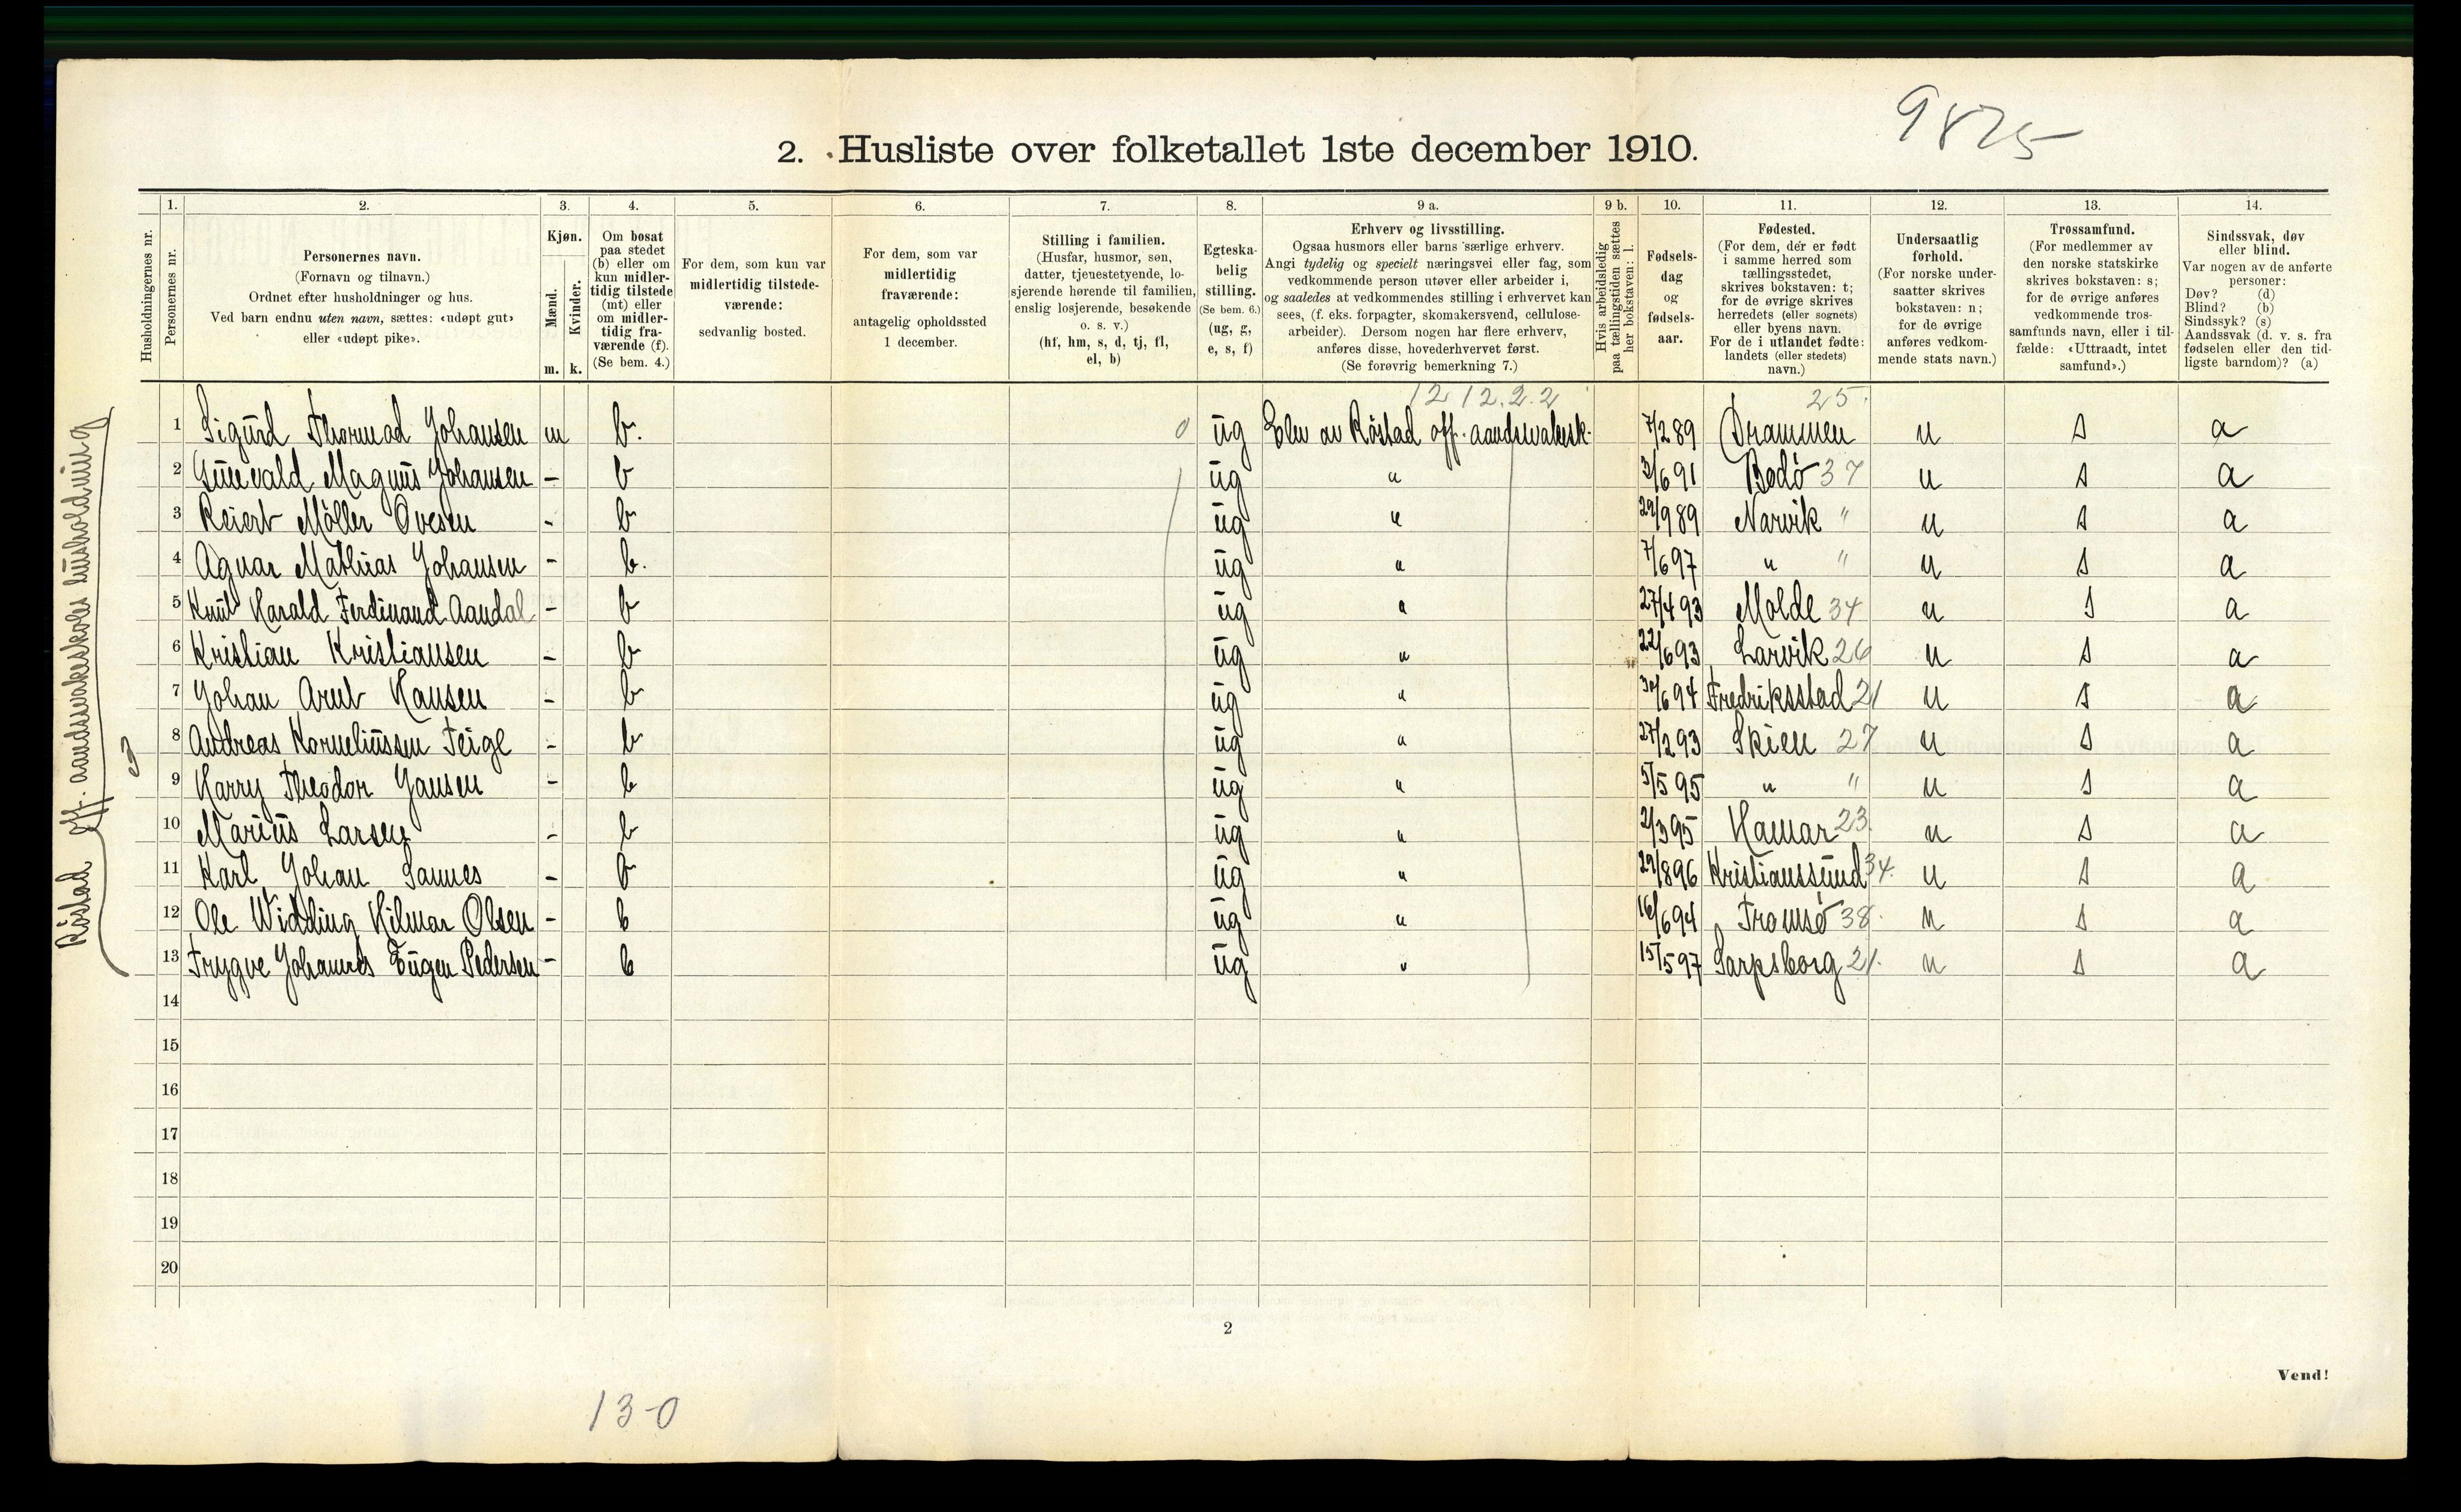 9825
2. Husliste over folketallet 1ste december 1910.
Husholdningernes nr.
1. Personernes nr.
2. Personernes navn.
(Fornavn og tilnavn.)
Ordnet efter husholdninger og hus.
Ved barn endnu uten navn, sættes: «udøpt gut»
eller «udøpt pike».
3. Kjøn.
Mænd. m.
Kvinder. k.
4. Om bosat
paa stedet
(b) eller om
kun midler-
tidig tilstede
(mt) eller
om midler-
tidig fra-
værende (f).
(Se bem. 4.)
5. For dem, som kun var
midlertidig tilstede-
værende:
sedvanlig bosted.
6. For dem, som var
midlertidig
fraværende:
antagelig opholdssted
1 december.
7. Stilling i familien.
(Husfar, husmor, søn,
datter, tjenestetyende, lo-
sjerende hørende til familien,
enslig losjerende, besøkende
o. s. v.)
(hf, hm, s, d, tj, fl,
el, b)
8. Egteska-
belig
stilling.
(Se bem. 6.)
(ug, g,
e, s, f)
9 a. Erhverv og livsstilling.
Ogsaa husmors eller barns særlige erhverv.
Angi tydelig og specielt næringsvei eller fag, som
vedkommende person utøver eller arbeider i,
og saaledes at vedkommendes stilling i erhvervet kan
sees, (f. eks. forpagter, skomakersvend, cellulose-
arbeider). Dersom nogen har flere erhverv,
anføres disse, hovederhvervet først.
(Se forøvrig bemerkning 7.)
9 b. Hvis arbeidsledig
paa tællingstiden sættes
her bokstaven: l.
10. Fødsels-
dag
og
fødsels-
aar.
11. Fødested.
(For dem, der er født
i samme herred som
tællingsstedet,
skrives bokstaven: t;
for de øvrige skrives
herredets (eller sognets)
eller byens navn.
For de i utlandet fødte:
landets (eller stedets)
navn.)
12. Undersaatlig
forhold.
(For norske under-
saatter skrives
bokstaven: n;
for de øvrige
anføres vedkom-
mende stats navn.)
13. Trossamfund.
(For medlemmer av
den norske statskirke
skrives bokstaven: s;
for de øvrige anføres
vedkommende tros-
samfunds navn, eller i til-
fælde: «Uttraadt, intet
samfund».)
14. Sindssvak, døv
eller blind.
Var nogen av de anførte
personer:
Døv? (d)
Blind? (b)
Sindssyk? (s)
Aandssvak (d. v. s. fra
fødselen eller den tid-
ligste barndom)? (a)
Röstad off. aandssvakeskoles husholdning
3
12 12.2.2 25.
1 Sigurd Thormod Johansen m b. 0 ug Elev av Röstad off. aandssvakesk. 7/2 89 Drammen n s a
2 Gunevald Magnus Johansen - b ug " 3/6 91 Bodö 37 n s a
3 Reiert Möller Ovesen - b ug " 29/9 89 Narvik " n s a
4 Agnar Mathias Johansen - b. ug " 7/6 97 " " n s a
5 Knut Harald Ferdinand Aandal - b ug " 27/4 93 Molde 34 n s a
6 Kristian Kristiansen - b ug " 22/6 93 Larvik 26 n s a
7 Johan Arnt Hansen - b ug " 30/6 94 Fredriksstad 21 n s a
8 Andreas Korneliussen Feige - b ug " 27/2 93 Skien 27 n s a
9 Harry Theodor Jansen - b ug " 5/5 95 " " n s a
10 Marius Larsen - b ug " 2/3 95 Hamar 23. n s a
11 Karl Johan Sannes - b ug " 29/8 96 Kristianssund 34. n s a
12 Ole Widding Hilmar Olsen - b ug " 16/6 94 Tromsö 38. n s a
13 Trygve Johannes Eugen Pedersen - b ug " 15/5 97 Sarpsborg 21. n s a
14
15
16
17
18
19
20
2
Vend!
13-0